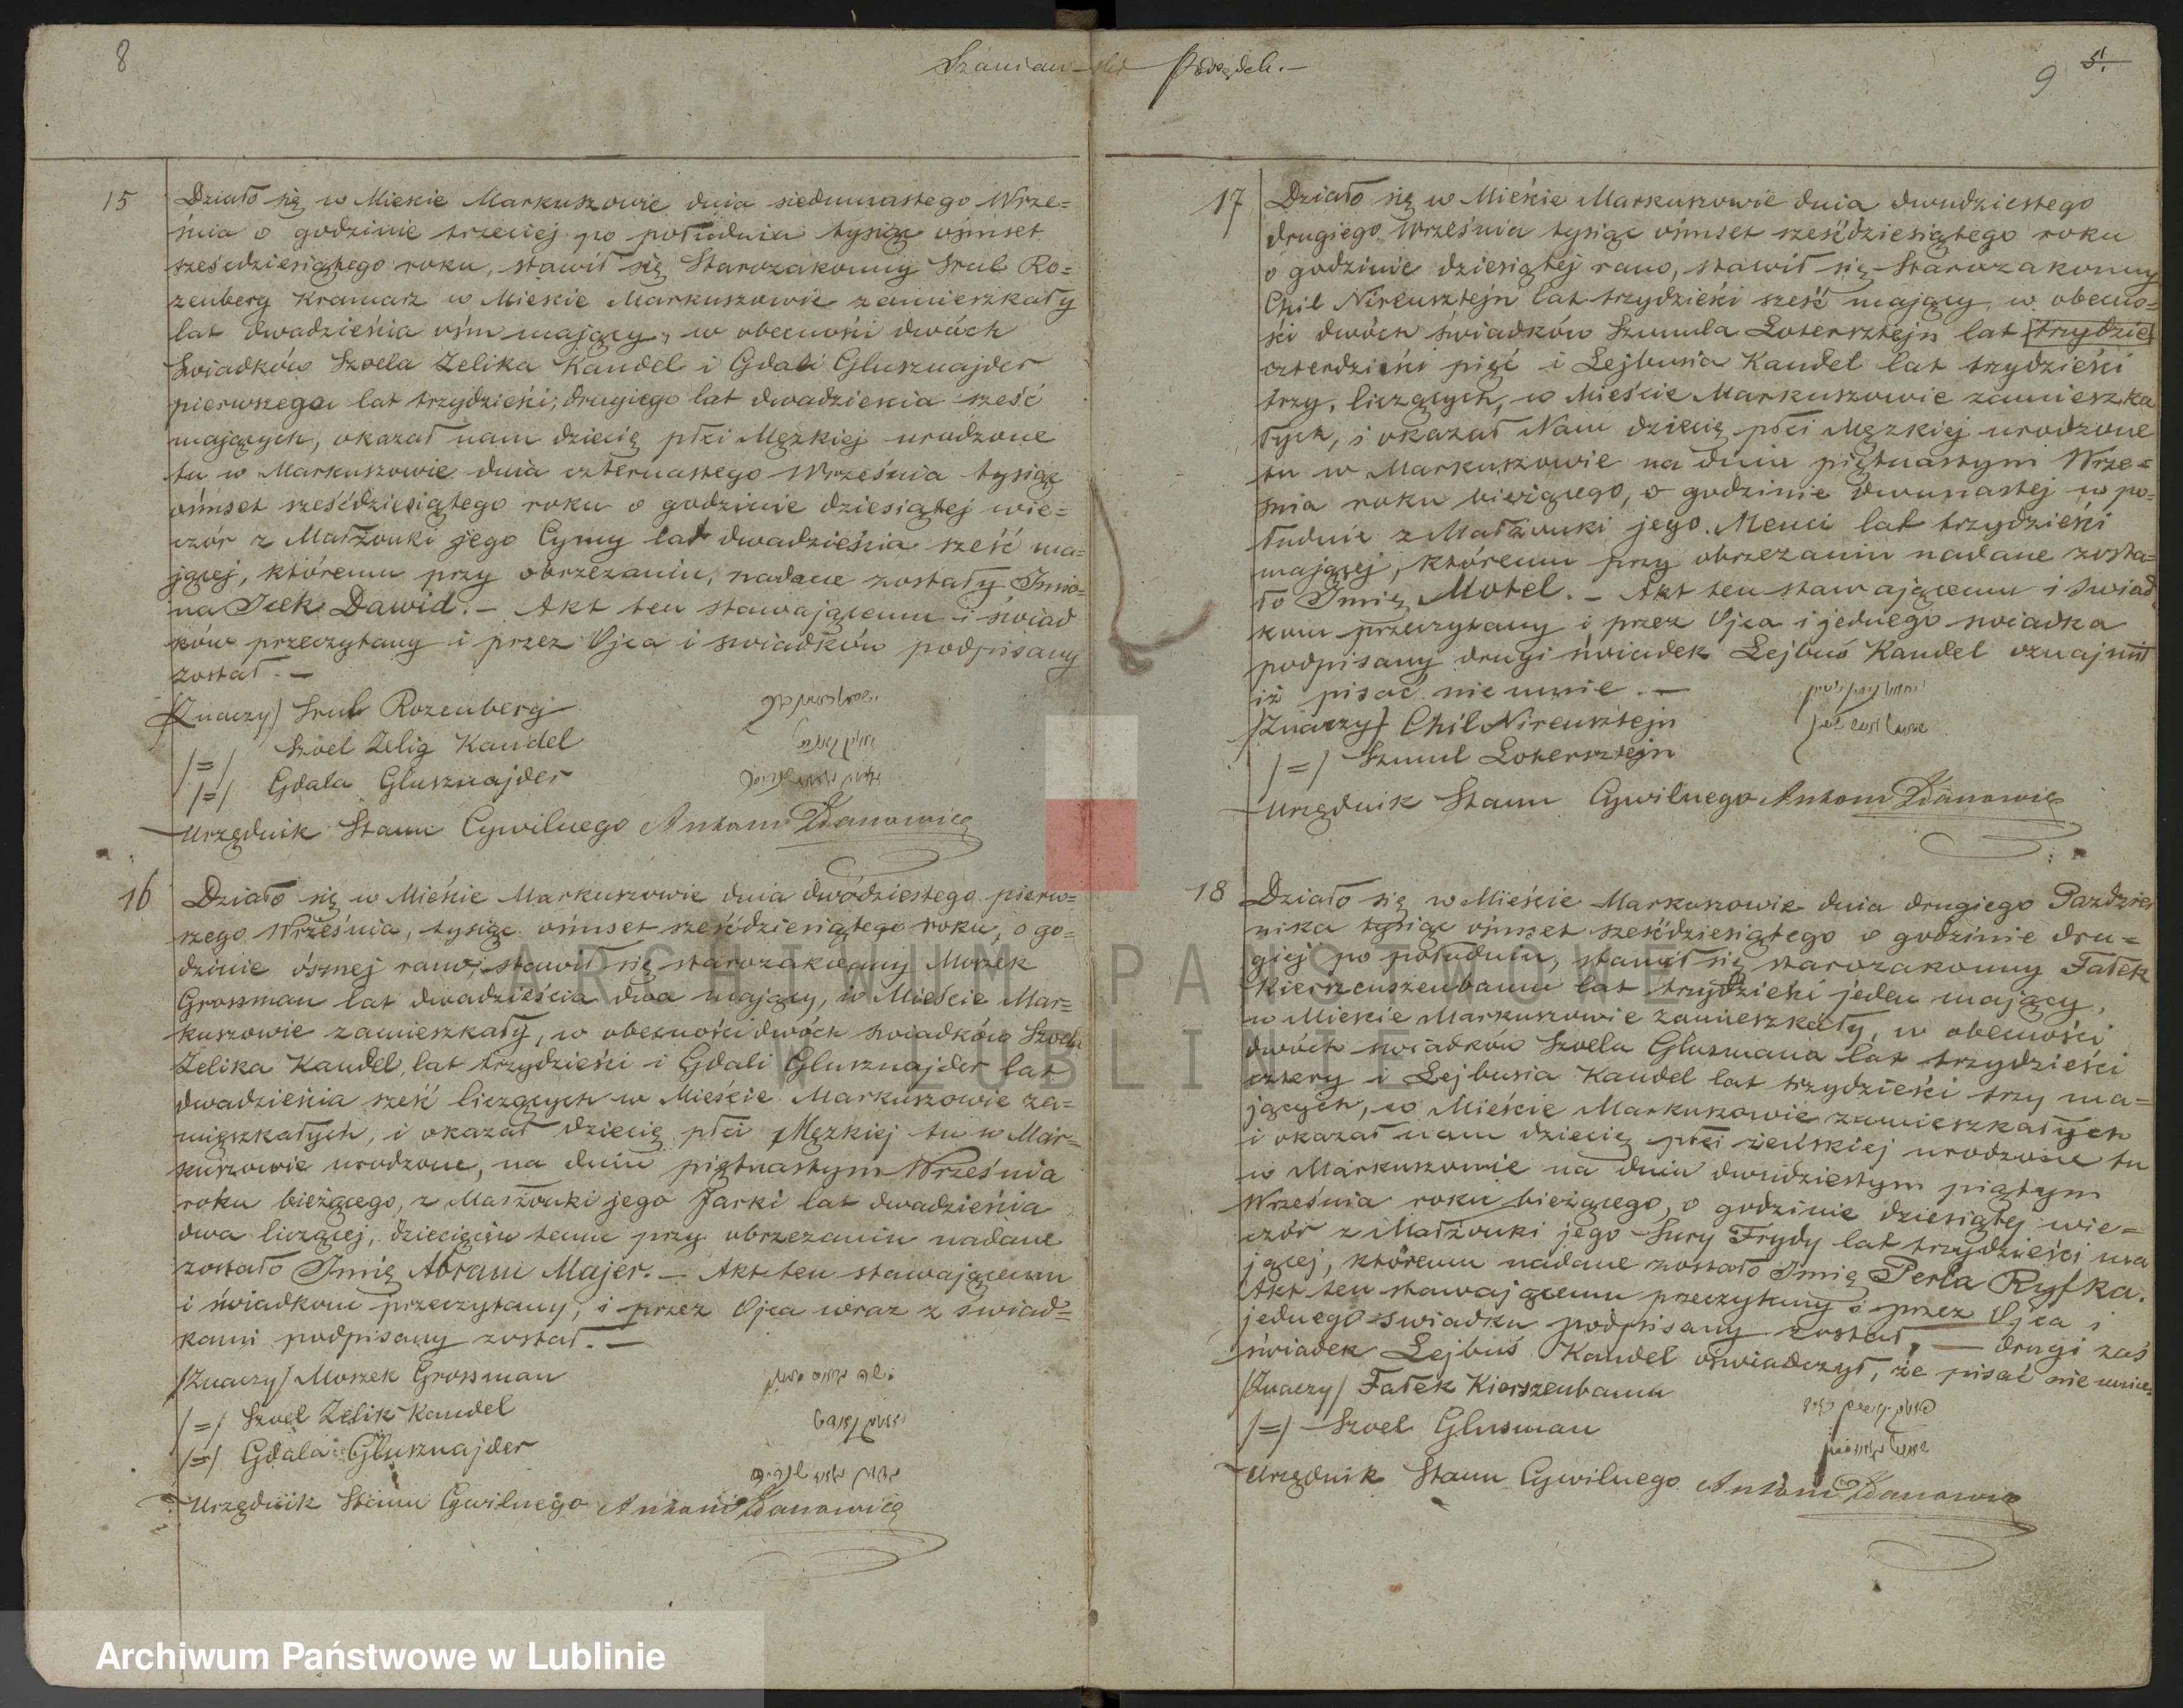 8
Szaniaw-ski Podsędek.-
9 5.
15
Działo się w Mieście Markuszowie dnia siedmnastego Wrze=
śnia o godzinie trzeciej po południu tysiąc ośmset
sześćdziesiątego roku, stawił się Starozakonny Srul Ro=
zenberg Kramarz w Mieście Markuszowie zamieszkały
lat dwadzieścia ośm mający, w obecności dwóch
Świadków Szoela Zelika Kandel i Gdali Glusznajder
pierwszego lat trzydzieści, drugiego lat dwadzieścia sześć
mających, okazał nam dziecię płci Męzkiej urodzone
tu w Markuszowie dnia czternastego Września tysiąc
ośmset sześćdziesiątego roku o godzinie dziesiątej wie=
czór z Małżonki jego Cymy lat dwadzieścia sześć ma=
jącej, któremu przy obrzezaniu, nadane zostały Imio=
na Icek Dawid.- Akt ten stawającemu i świad
ków przeczytany i przez Ojca i świadków podpisany
został.-
/Znaczy/ Srul Rozenberg
/=/ Szoel Zelig Kandel
/=/ Gdala Glusznajder
Urzędnik Stanu Cywilnego Antoni Zdanowicz
16
Działo się w Mieście Markuszowie dnia dwódziestego pierw=
szego Września, tysiąc ośmset sześćdziesiątego roku, o go=
dzinie ósmej rano, stawił się starozakonny Moszek
Grossman lat dwadzieścia dwa mający, w Mieście Mar=
kuszowie zamieszkały, w obecności dwóch świadków Szoela
Zelika Kandel, lat trzydzieści i Gdali Glusznajder lat
dwadzieścia sześć liczących w Mieście Markuszowie za=
mięszkałych, i okazał dziecię płci Męzkiej tu w Mar=
kuszowie urodzone, na dniu piętnastym Września
roku bieżącego, z Małżonki jego Jarki lat dwadzieścia
dwa liczącej, dziecięciu temu przy obrzezaniu nadane
zostało Imię Abram Majer.- Akt ten stawającemu
i świadkom przeczytany, i przez Ojca wraz z świad=
kami podpisany został.-
/Znaczy/ Moszek Grossman
/=/ Szoel Zelik Kandel
/=/ Gdala Glusznajder
Urzędnik Stanu Cywilnego Antoni Zdanowicz
17
Działo się w Mieście Markuszowie dnia dwudziestego
drugiego Września tysiąc ośmset sześćdziesiątego roku
o godzinie dziesiątej rano, stawił się Starozakonny
Chil Nirensztejn lat trzydzieści sześć mający w obecno=
ści dwóch świadków Szmula Lotersztejn lat trzydzie
czterdzieści pięć i Lejbusia Kandel lat trzydzieści
trzy, liczących, w Mieście Markuszowie zamieszka
łych, i okazał Nam dziecię płci Męzkiej urodzone
tu w Markuszowie na dniu piętnastym Wrze=
śnia roku bieżącego, o godzinie dwunastej w po=
łudnie z Małżonki jego Menci lat trzydzieści
mającej, któremu przy obrzezaniu nadane zosta=
ło Imię Motel.- Akt ten stawającemu i świad
kom przeczytany i przez Ojca i jednego świadka
podpisany drugi świadek Lejbuś Kandel oznajmił
iż pisać nie umie.-
/Znaczy/ Chil Nirensztejn
/=/ Szmul Lotersztejn
Urzędnik Stanu Cywilnego Antoni Zdanowicz
18
Działo się w Mieście Markuszowie dnia drugiego Paździer
nika tysiąc ośmset sześćdziesiątego o godzinie dru=
giej po południu, stawił się starozakonny Fałek
Kierszenszenbaum lat trzydzieści jeden mający,
w Mieście Markuszowie zamieszkały, w obecności
dwóch świadków Szoela Glusmana lat trzydzieści
cztery i Lejbusia Kandel lat trzydzieści trzy ma=
jących, w Mieście Markuszowie zamieszkałych
i okazał nam dziecię płci żeńskiej urodzone tu
w Markuszowie na dniu dwudziestym piątym
Września roku bieżącego, o godzinie dziesiątej wie=
czór z Małżonki jego Sury Frydy lat trzydzieści ma
jącej, któremu nadane zostało Imię Perla Ryfka.
Akt ten stawającemu przeczytany i przez Ojca i
jednego świadku podpisany został, — drugi zaś
świadek Lejbuś Kandel oświadczył, że pisać nie umie.
/Znaczy/ Fałek Kierszenbaum
/=/ Szoel Glusman
Urzędnik Stanu Cywilnego Antoni Zdanowicz
ARCHIWUM PAŃSTWOWE
W LUBLINIE
Archiwum Państwowe w Lublinie